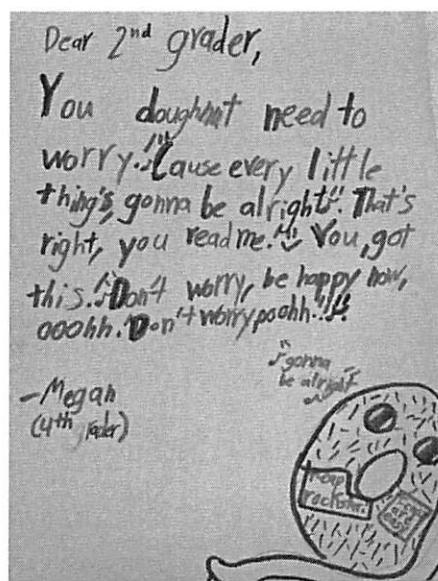 Dear 2nd grader,
You doughnut need to
worry. Cause every little
thing's, gonna be alright. That's
right, you read me. You, got
this. Don't worry, be happy now,
ooohh. Don't worry, poohh.
♪ gonna
be alright
-Megan
(4th grader)
rockstar!